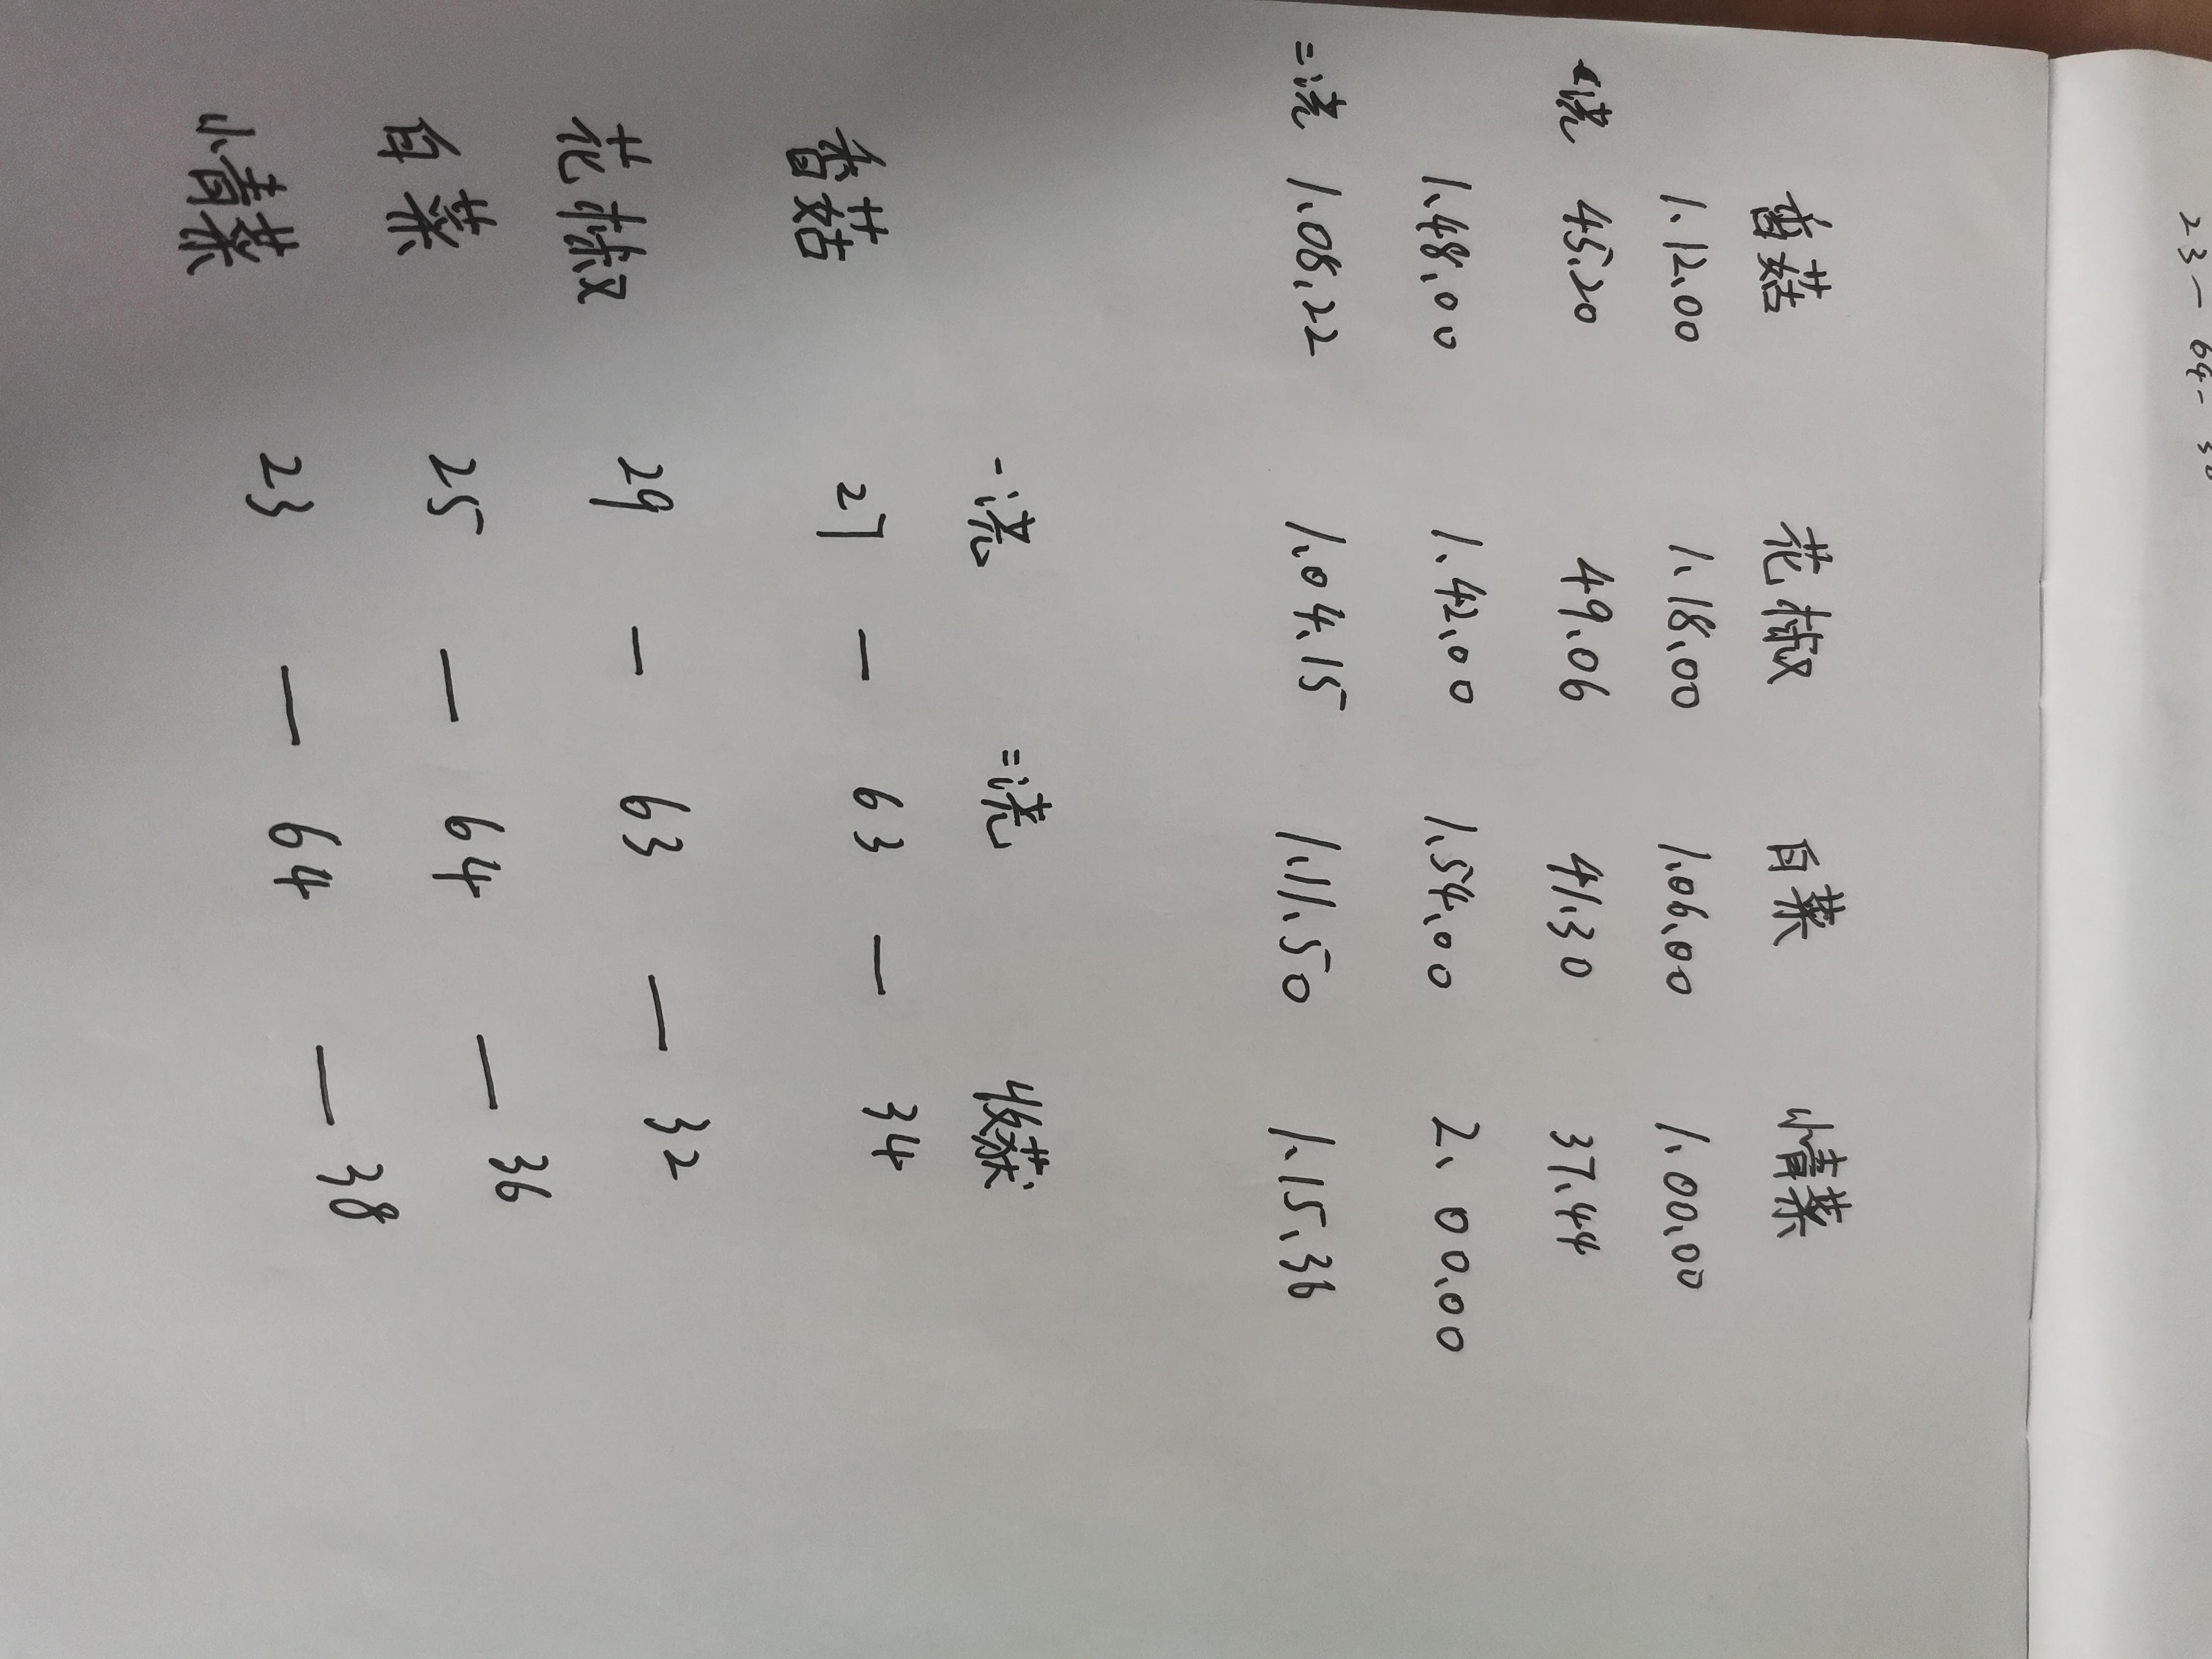 23 — 64 —
香菇 花椒 白菜 小青菜
1.12.00 1.18.00 1.06.00 1.00.00
一浇 45.20 49.06 41.30 37.44
1.48.00 1.42.00 1.54.00 2.00.00
二浇 1.08.22 1.04.15 1.11.50 1.15.36
一浇 二浇 收获
香菇 27 — 63 — 34
花椒 29 — 63 — 32
白菜 25 — 64 — 36
小青菜 23 — 64 — 38